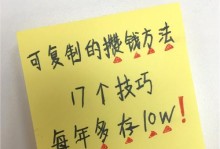 可复制的攒钱方法
17个技巧
每年多存10W!